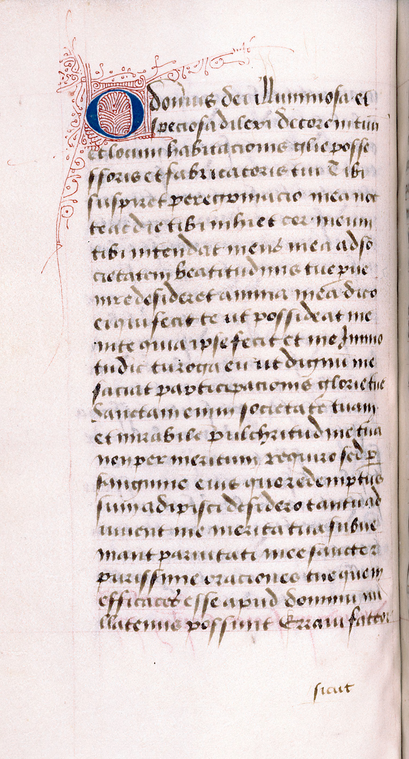 O domus dei illuminosa et
speciosa dilexi decorem tuū
et locum habitacionis glie posse
ssoris et fabricatoris tui Tibi
suspiret peregrinacio mea noc
te ac die tibi inhiet cor meum
tibi intendat mens mea ad so
cietatem beatitudinis tue pve
nire desideret anima mea dico
ei qui fecit te ut possideat me
in te quia ipse fecit et me Immo
tu dic tu roga eū ut dignū me
faciat participacionis glorie tue
Sanctam enim societatē tuam
et mirabile pulchritudinē tua
non per meritum requiro sed p
sanguine eius quo redemptus
sum adipisci desidero tantū ad
iuvent me merita tua subve
niant parvitati mee sancte z
purissime oraciones tue quem
efficaces esse apud dominū nu
llatenus possunt Erravi factor
sicut